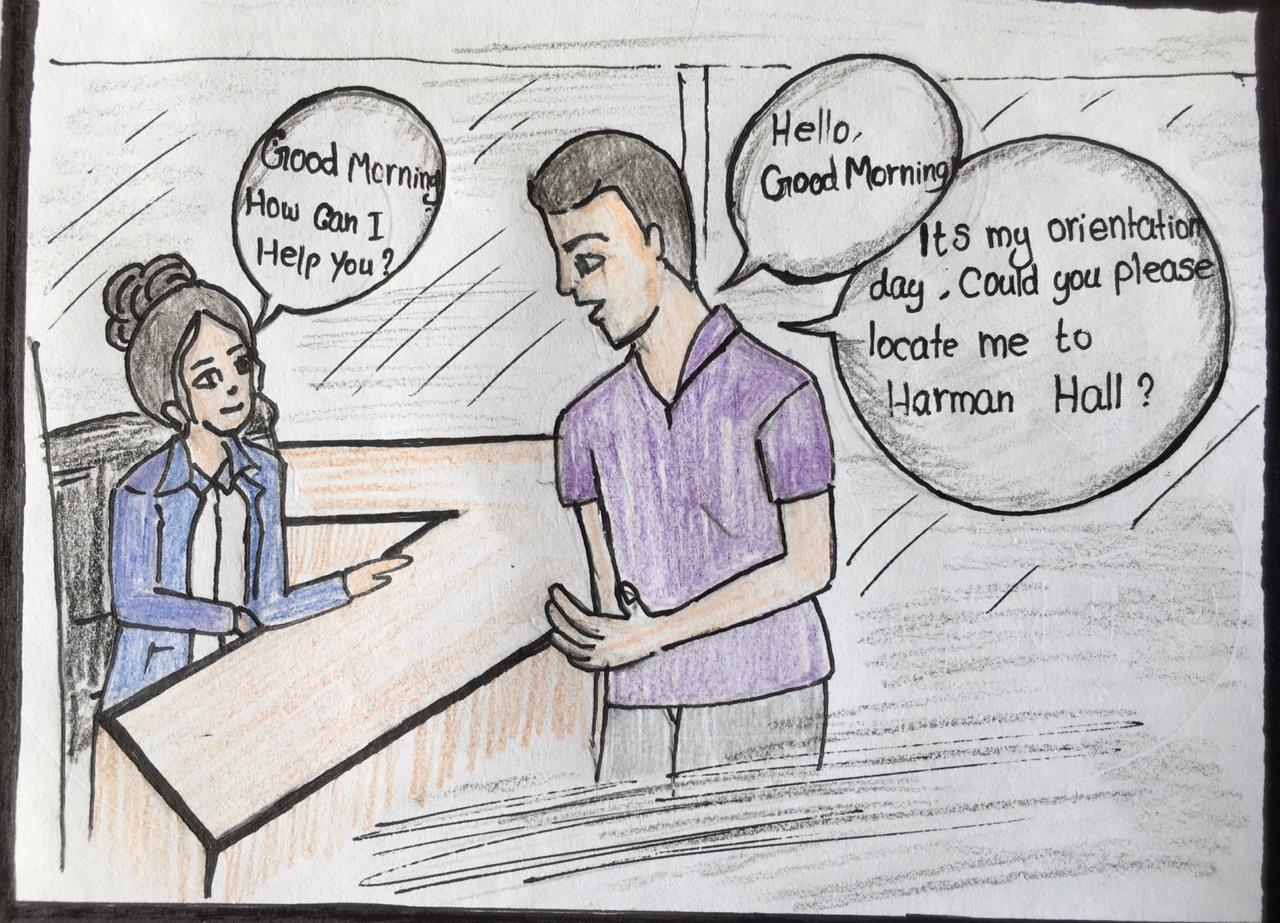 Good Morning
How Can I
Help you?
Hello,
Good Morning
Its my orientation
day, Could you please
locate me to
Harman Hall?